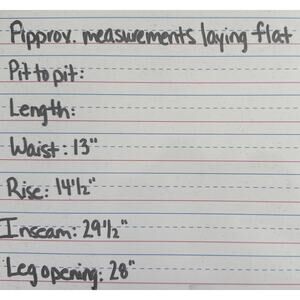 Approx. measurements laying flat
Pit to pit:
Length:
Waist: 13"
Rise: 14½"
Inseam: 29½"
Leg opening: 28"